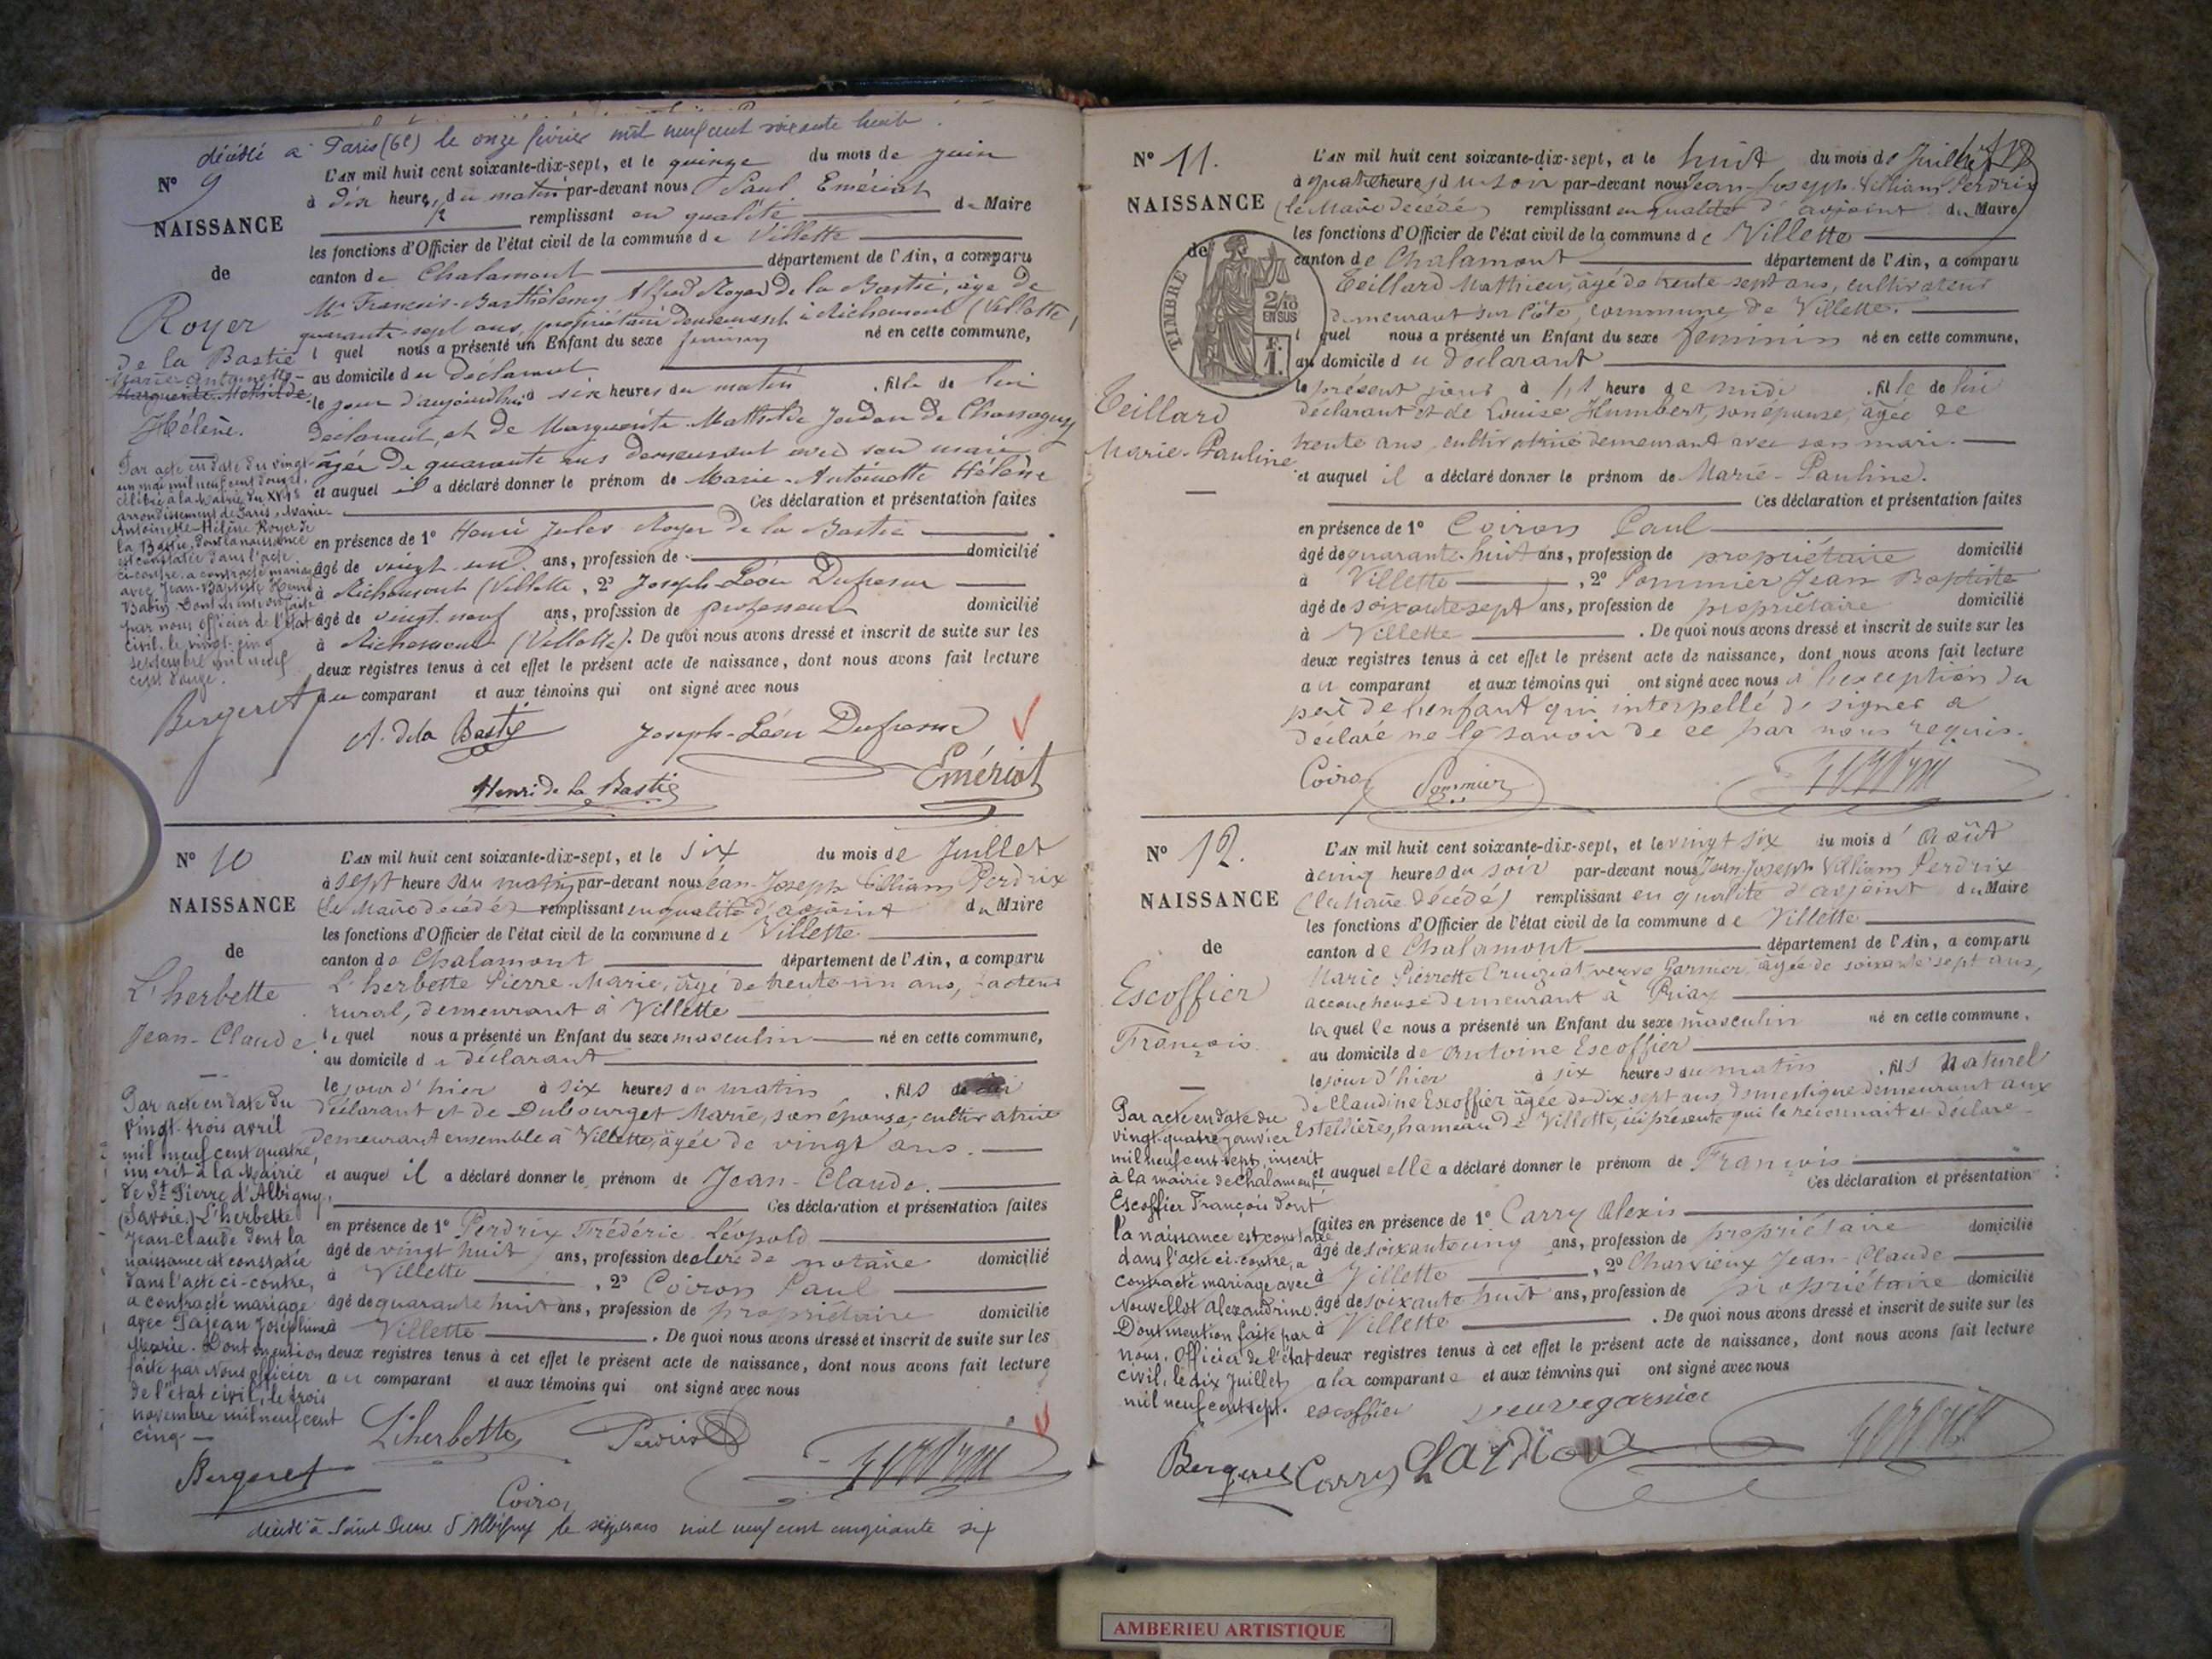 décédé à Paris (6e) le onze février mil neuf cent soixante
N° 9
NAISSANCE
de
Royer
de la Bastie
Marie-Antoinette-
Marguerite Mathilde
Hélène.
Par acte en date du vingt
un mai mil neuf cent douze,
célébré à la Mairie du XVIe
arrondissement de Paris, Marie-
Antoinette-Hélène Royer de
la Bastie, dont la naissance
est constatée dans l'acte
ci-contre, a contracté mariage
avec Jean-Baptiste Henri
Babin. Dont mention faite
par nous officier de l'état
civil, le vingt-cinq
septembre mil neuf
cent douze.
Bergeret
L'AN mil huit cent soixante-dix-sept, et le quinze du mois de juin
à dix heures 1/2 du matin par-devant nous Paul Emériat
remplissant en qualité de Maire
les fonctions d'Officier de l'état civil de la commune de Villette
canton de Chalamont département de l'Ain, a comparu
Mr Francois-Barthélemy Alfred Royer de la Bastie, âgé de
quarante-sept ans, propriétaire demeurant à Richemont (Villette)
lequel nous a présenté un Enfant du sexe féminin né en cette commune,
au domicile du déclarant
le jour d'aujourd'hui à six heures du matin, fille de lui
déclarant, et de Marguerite-Mathilde Jordan de Chassagny
âgée de quarante ans demeurant avec son mari
et auquel il a déclaré donner le prénom de Marie-Antoinette Hélène
Ces déclaration et présentation faites
en présence de 1° Henri Jules Royer de la Bastie
âgé de vingt-un ans, profession de domicilié
à Richemont (Villette), 2° Joseph-Léon Dufresne
âgé de vingt-neuf ans, profession de professeur domicilié
à Richemont (Villette). De quoi nous avons dressé et inscrit de suite sur les
deux registres tenus à cet effet le présent acte de naissance, dont nous avons fait lecture
au comparant et aux témoins qui ont signé avec nous
A. de la Bastie Joseph-Léon Dufresne
Henri de la Bastie Emériat
N° 10
NAISSANCE
de
L'herbette
Jean-Claude
Par acte en date du
vingt-trois avril
mil neuf cent quatre,
inscrit à la Mairie
de St Pierre d'Albigny,
(Savoie) L'herbette
Jean-Claude dont la
naissance est constatée
dans l'acte ci-contre,
a contracté mariage
avec Pajean Joséphine
Marie. Dont mention
faite par Nous officier
de l'état civil, le trois
novembre mil neuf cent
cinq —
Bergeret
L'AN mil huit cent soixante-dix-sept, et le six du mois de Juillet
à sept heures du matin par-devant nous Jean-Joseph Villiam Perdrix
(le Maire décédé) remplissant en qualité d'adjoint du Maire
les fonctions d'Officier de l'état civil de la commune de Villette
canton de Chalamont département de l'Ain, a comparu
L'herbette Pierre-Marie, âgé de trente un ans, facteur
rural, demeurant à Villette
lequel nous a présenté un Enfant du sexe masculin né en cette commune,
au domicile du déclarant
le jour d'hier à six heures du matin, fils de lui
déclarant et de Dubourget Marie, son épouse, cultivatrice
demeurant ensemble à Villette, âgée de vingt ans.
et auquel il a déclaré donner le prénom de Jean-Claude.
Ces déclaration et présentation faites
en présence de 1° Perdrix Frédéric Léopold
âgé de vingt huit ans, profession de clerc de notaire domicilié
à Villette, 2° Coiron Paul
âgé de quarante huit ans, profession de propriétaire domicilié
à Villette. De quoi nous avons dressé et inscrit de suite sur les
deux registres tenus à cet effet le présent acte de naissance, dont nous avons fait lecture
au comparant et aux témoins qui ont signé avec nous
L'herbette Perdrix
Coiron
décédé à Saint Pierre d'Albigny le mil neuf cent cinquante six
N° 11.
NAISSANCE
de
TIMBRE
2/10 EN SUS
Teillard
Marie-Pauline
L'AN mil huit cent soixante-dix-sept, et le huit du mois de Juillet
à quatre heures du soir par-devant nous Jean-Joseph Villiam Perdrix
(le Maire décédé) remplissant en qualité d'adjoint du Maire
les fonctions d'Officier de l'état civil de la commune de Villette
canton de Chalamont département de l'Ain, a comparu
Teillard Matthieu, âgé de trente sept ans, cultivateur
demeurant sur Côte, commune de Villette.
lequel nous a présenté un Enfant du sexe féminin né en cette commune,
au domicile du déclarant
le présent jour à heure de midi, fille de lui
déclarant et de Louise Humbert, son épouse, âgée de
trente ans, cultivatrice demeurant avec son mari.
et auquel il a déclaré donner le prénom de Marie-Pauline.
Ces déclaration et présentation faites
en présence de 1° Coiron Paul
âgé de quarante-huit ans, profession de propriétaire domicilié
à Villette, 2° Pommier Jean Baptiste
âgé de soixante sept ans, profession de propriétaire domicilié
à Villette. De quoi nous avons dressé et inscrit de suite sur les
deux registres tenus à cet effet le présent acte de naissance, dont nous avons fait lecture
au comparant et aux témoins qui ont signé avec nous à l'exception du
père de l'enfant qui interpellé de signer a
déclaré ne le savoir de ce par nous requis.
Coiron Pommier
N° 12.
NAISSANCE
de
Escoffier
François
Par acte en date du
vingt-quatre janvier
mil neuf cent sept, inscrit
à la mairie de Chalamont,
Escoffier François dont
la naissance est constatée
dans l'acte ci-contre, a
contracté mariage avec
Nouvellot Alexandrine
Dont mention faite par
nous, Officier de l'état
civil, le dix Juillet
mil neuf cent sept.
Bergeret
L'AN mil huit cent soixante-dix-sept, et le vingt six du mois d'Août
à cinq heures du soir par-devant nous Jean Joseph Villiam Perdrix
(le Maire décédé) remplissant en qualité d'adjoint du Maire
les fonctions d'Officier de l'état civil de la commune de Villette
canton de Chalamont département de l'Ain, a comparu
Marie Pierrette Cruiziat, veuve Garnier, âgée de soixante sept ans,
accoucheuse demeurant à Priay
laquelle nous a présenté un Enfant du sexe masculin né en cette commune,
au domicile de Antoine Escoffier
le jour d'hier à six heures du matin, fils naturel
de Claudine Escoffier âgée de dix sept ans, domestique demeurant aux
Estellières, hameau de Villette, ici présente qui le reconnait et déclare
et auquel elle a déclaré donner le prénom de François
Ces déclaration et présentation
faites en présence de 1° Carry Alexis
âgé de soixante cinq ans, profession de propriétaire domicilié
à Villette, 2° Charvieux Jean-Claude
âgé de soixante huit ans, profession de propriétaire domicilié
à Villette. De quoi nous avons dressé et inscrit de suite sur les
deux registres tenus à cet effet le présent acte de naissance, dont nous avons fait lecture
à la comparante et aux témoins qui ont signé avec nous
escoffier veuve garnier
Carry
AMBERIEU ARTISTIQUE